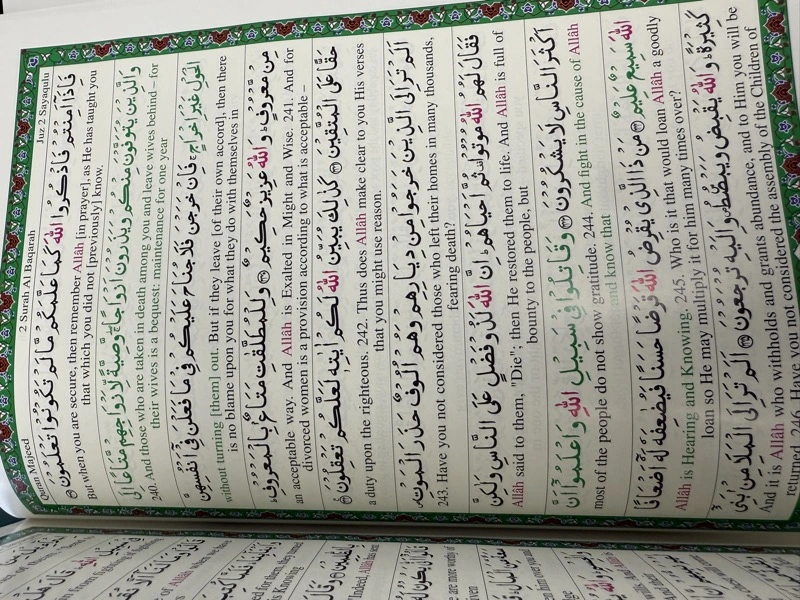 Quran Majeed
2 Surah Al Baqarah
Juz 2 Sayaqulu
فَاِذَآ اَمِنْتُمْ فَاذْكُرُوا اللّٰهَ كَمَا عَلَّمَكُمْ مَّا لَمْ تَكُوْنُوْا تَعْلَمُوْنَ
But when you are secure, then remember Allâh [in prayer], as He has taught you
that which you did not [previously] know.
وَالَّذِيْنَ يُتَوَفَّوْنَ مِنْكُمْ وَيَذَرُوْنَ اَزْوَاجًا وَّصِيَّةً لِّاَزْوَاجِهِمْ مَّتَاعًا اِلَى
240. And those who are taken in death among you and leave wives behind – for
their wives is a bequest: maintenance for one year
الْحَوْلِ غَيْرَ اِخْرَاجٍ فَاِنْ خَرَجْنَ فَلَا جُنَاحَ عَلَيْكُمْ فِيْ مَا فَعَلْنَ فِيْٓ اَنْفُسِهِنَّ
without turning [them] out. But if they leave [of their own accord], then there
is no blame upon you for what they do with themselves in
مِنْ مَّعْرُوْفٍ وَاللّٰهُ عَزِيْزٌ حَكِيْمٌ وَلِلْمُطَلَّقٰتِ مَتَاعٌۢ بِالْمَعْرُوْفِ
an acceptable way. And Allâh is Exalted in Might and Wise. 241. And for
divorced women is a provision according to what is acceptable –
حَقًّا عَلَى الْمُتَّقِيْنَ كَذٰلِكَ يُبَيِّنُ اللّٰهُ لَكُمْ اٰيٰتِهٖ لَعَلَّكُمْ تَعْقِلُوْنَ
a duty upon the righteous. 242. Thus does Allâh make clear to you His verses
that you might use reason.
اَلَمْ تَرَ اِلَى الَّذِيْنَ خَرَجُوْا مِنْ دِيَارِهِمْ وَهُمْ اُلُوْفٌ حَذَرَ الْمَوْتِ
243. Have you not considered those who left their homes in many thousands,
fearing death?
فَقَالَ لَهُمُ اللّٰهُ مُوْتُوْا ثُمَّ اَحْيَاهُمْ اِنَّ اللّٰهَ لَذُوْ فَضْلٍ عَلَى النَّاسِ وَلٰكِنَّ
Allâh said to them, "Die"; then He restored them to life. And Allâh is full of
bounty to the people, but
اَكْثَرَ النَّاسِ لَا يَشْكُرُوْنَ وَقَاتِلُوْا فِيْ سَبِيْلِ اللّٰهِ وَاعْلَمُوْٓا اَنَّ
most of the people do not show gratitude. 244. And fight in the cause of Allâh
and know that
اللّٰهَ سَمِيْعٌ عَلِيْمٌ مَنْ ذَا الَّذِيْ يُقْرِضُ اللّٰهَ قَرْضًا حَسَنًا فَيُضٰعِفَهٗ لَهٗٓ اَضْعَافًا
Allâh is Hearing and Knowing. 245. Who is it that would loan Allâh a goodly
loan so He may multiply it for him many times over?
كَثِيْرَةً وَاللّٰهُ يَقْبِضُ وَيَبْصُۜطُ وَاِلَيْهِ تُرْجَعُوْنَ اَلَمْ تَرَ اِلَى الْمَلَاِ مِنْۢ بَنِيْٓ
And it is Allâh who withholds and grants abundance, and to Him you will be
returned. 246. Have you not considered the assembly of the Children of